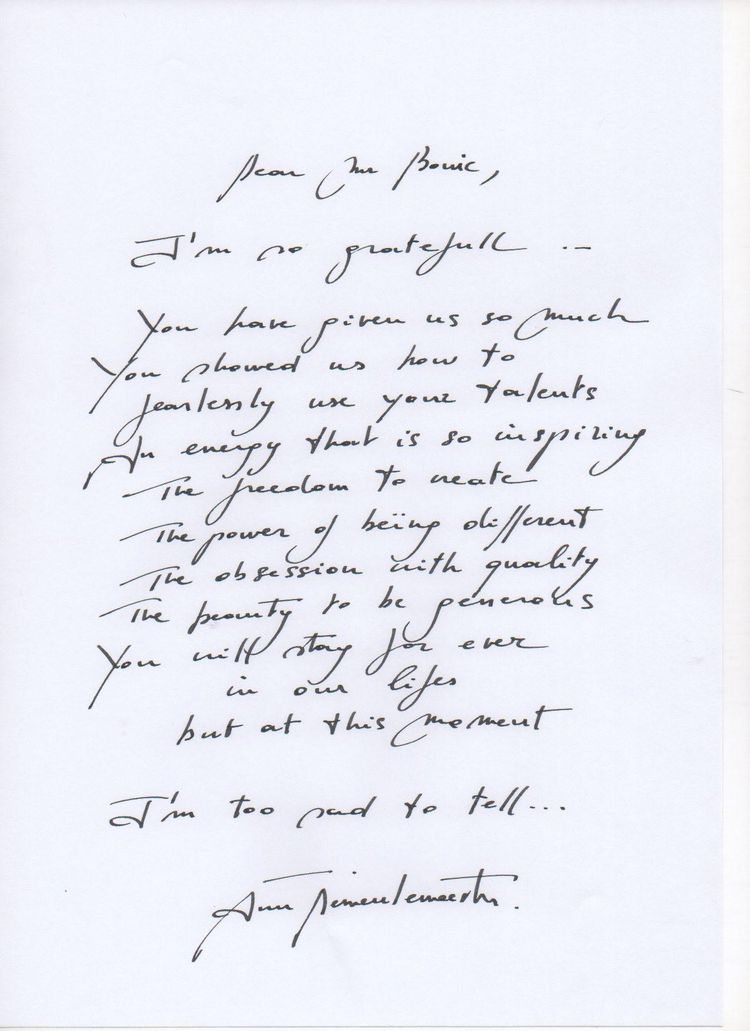 Dear Mr Bowie,
I'm so gratefull ..-
You have given us so much
You showed us how to
fearlessly use your talents
An energy that is so inspiring
The freedom to create
The power of being different
The obsession with quality
The beauty to be generous
You will stay for ever
in our lifes
but at this moment
I'm too sad to tell...
Ann Demeulemeester.